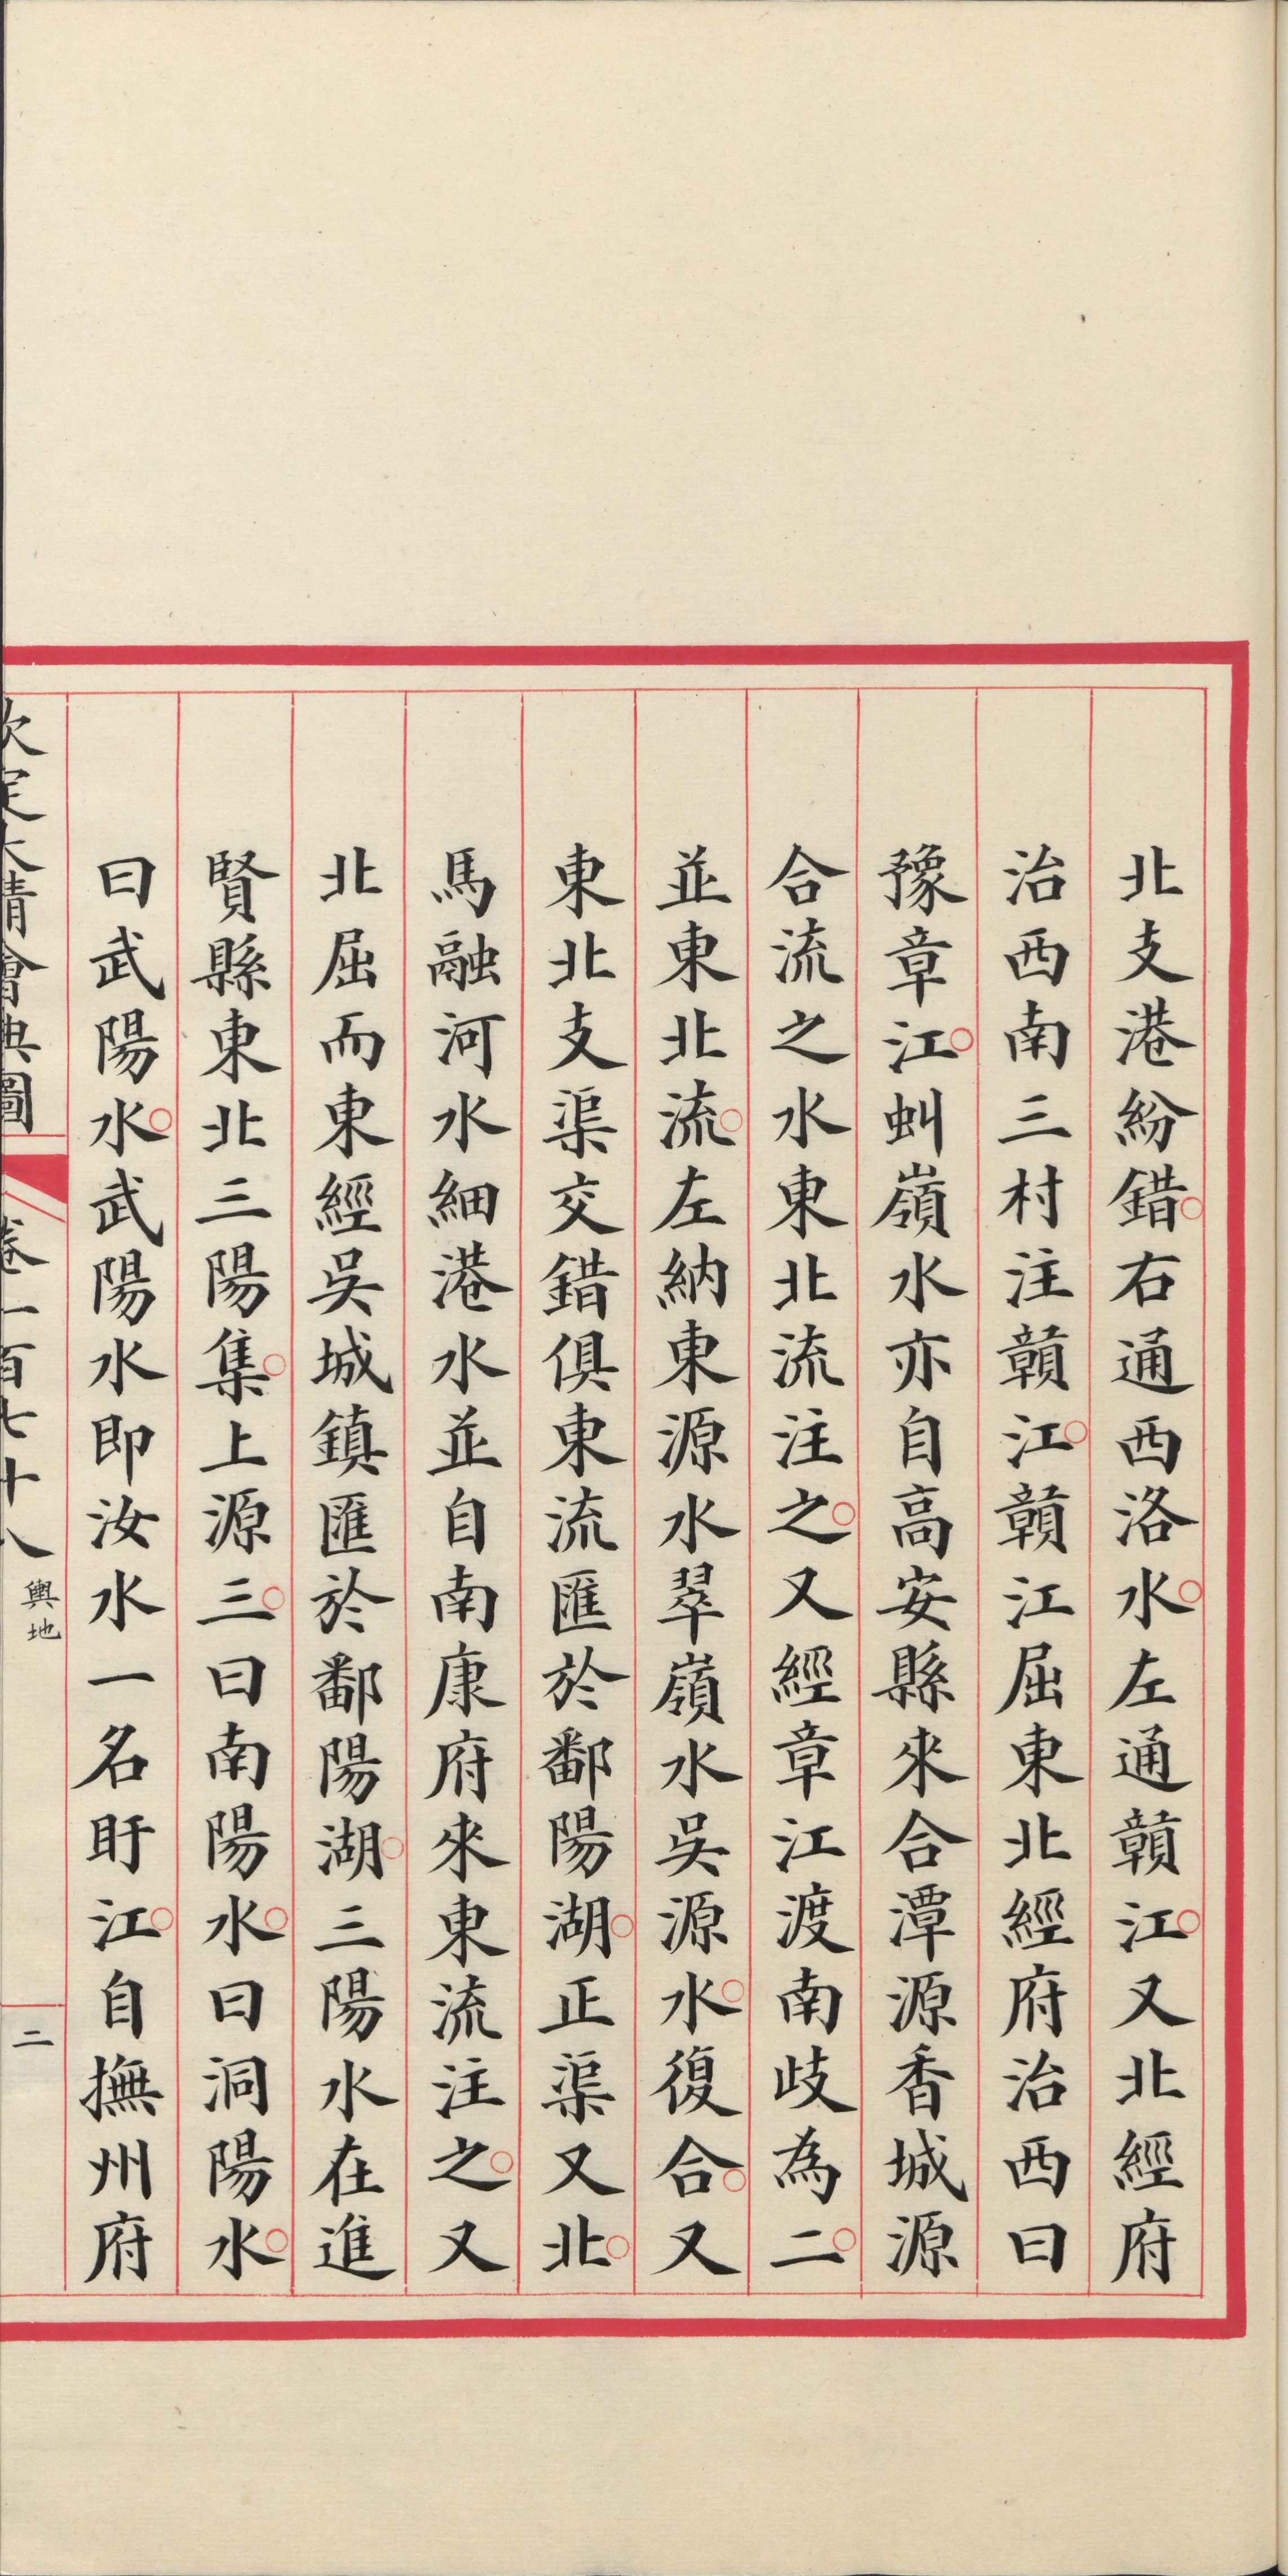 北支港紛錯○右通西洛水○左通贛江○又北經府
治西南三村注贛江○贛江屈東北經府治西曰
豫章江○虯嶺水亦自高安縣來合潭源香城源
合流之水東北流注之○又經章江渡南歧為二○
並東北流○左納東源水翠嶺水吳源水○復合○又
東北支渠交錯俱東流匯於鄱陽湖○正渠又北○
馬融河水細港水並自南康府來東流注之○又
北屈而東經吳城鎮匯於鄱陽湖○三陽水在進
賢縣東北三陽集○上源三○曰南陽水○曰洞陽水○
曰武陽水○武陽水即汝水一名盱江○自撫州府
欽定大清會典圖 卷一百七十八 輿地 二